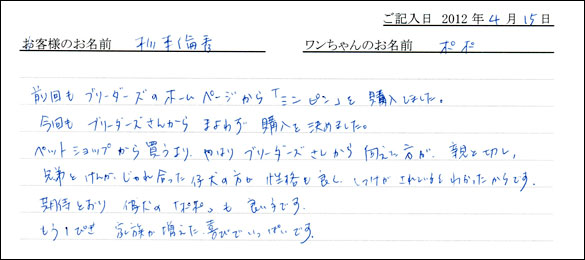 ご記入日 2012年 4月 15日
お客様のお名前 ワンちゃんのお名前 ポポ
前回も ブリーダーズのホームページから「ミンピン」を購入しました。
今回も ブリーダーズさんから まよわず 購入を決めました。
ペットショップから買うより、やはり ブリーダーズさんから 迎える方が、親と
兄弟とけんか、じゃれ合った仔犬の方が 性格も良し、しつけが されているとわかったからです。
期待どおり 仔犬の「ポポ」も 良い子です。
もう1ぴき 家族が増えた喜びでいっぱいです。